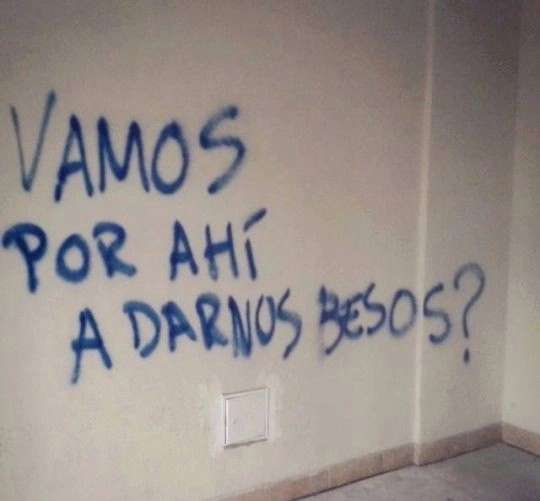 VAMOS
POR AHÍ
A DARNOS BESOS?